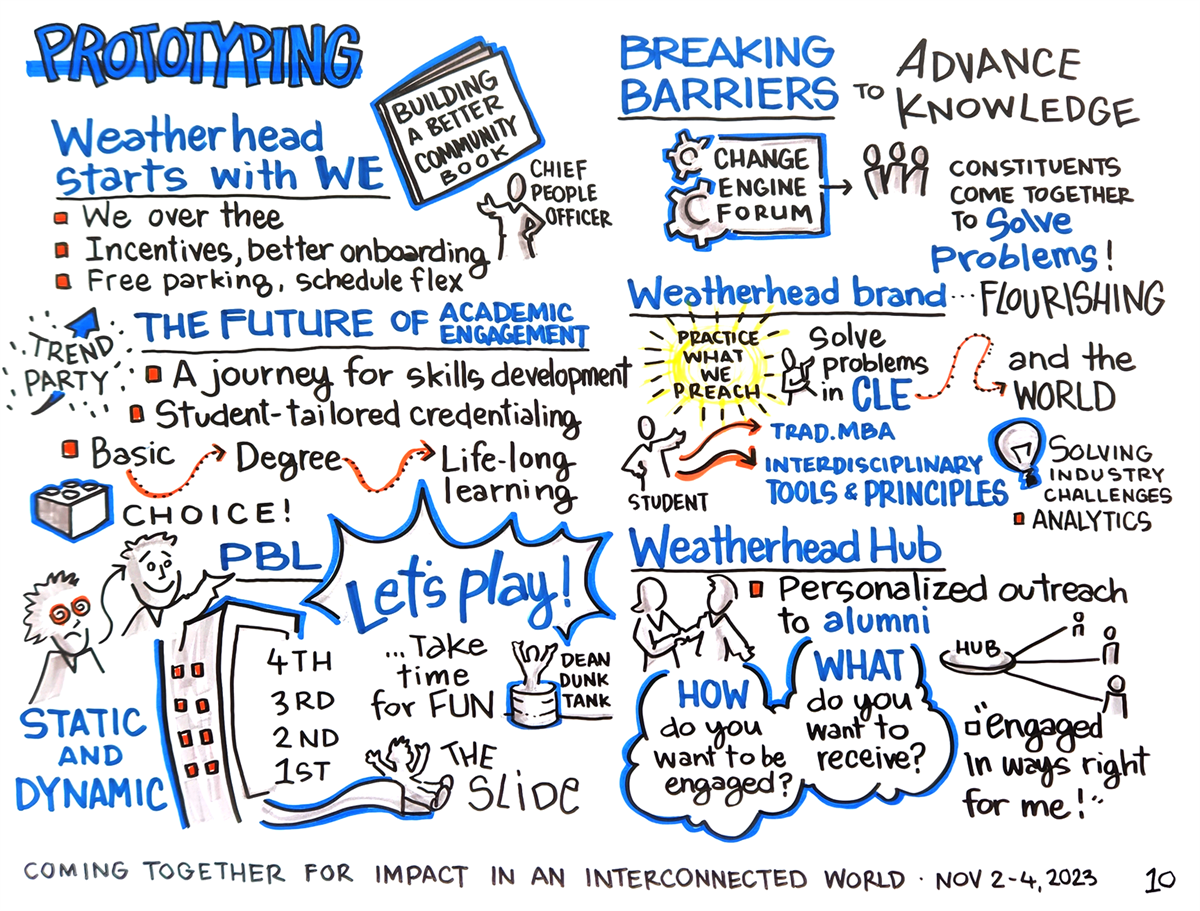 PROTOTYPING
BUILDING
A BETTER
COMMUNITY
BOOK
Weatherhead
starts with WE
CHIEF
PEOPLE
OFFICER
We over thee
Incentives, better onboarding
Free parking, schedule flex
TREND
PARTY
THE FUTURE OF ACADEMIC
ENGAGEMENT
A journey for skills development
Student-tailored credentialing
Basic Degree Life-long
learning
CHOICE!
PBL
Let's play!
4TH
3RD
2ND
1ST
...Take
time
for FUN
DEAN
DUNK
TANK
STATIC
AND
DYNAMIC
THE
SLIDE
BREAKING
BARRIERS TO ADVANCE
KNOWLEDGE
CHANGE
ENGINE
FORUM
CONSTITUENTS
COME TOGETHER
TO Solve
Problems!
Weatherhead brand...FLOURISHING
PRACTICE
WHAT
WE
PREACH
Solve
problems
in CLE
and the
WORLD
STUDENT
TRAD. MBA
INTERDISCIPLINARY
TOOLS & PRINCIPLES
SOLVING
INDUSTRY
CHALLENGES
ANALYTICS
Weatherhead Hub
Personalized outreach
to alumni
HUB
HOW
do you
want to be
engaged?
WHAT
do you
want to
receive?
"engaged
in ways right
for me!"
COMING TOGETHER FOR IMPACT IN AN INTERCONNECTED WORLD · NOV 2-4, 2023 10